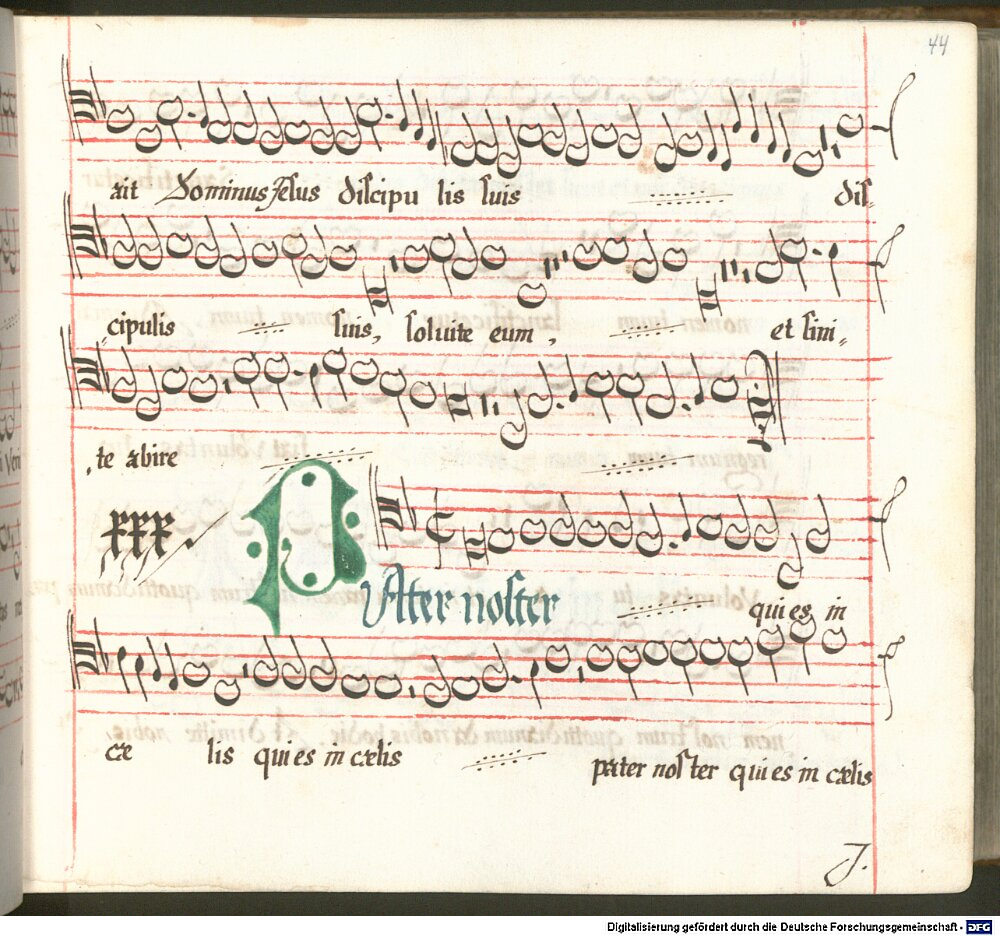 44
ait Dominus Jesus discipu lis suis dis-
cipulis suis, soluite eum, et sini-
te abire
xxx
PAter noster qui es in
cæ lis qui es in cælis pater noster qui es in cælis
J.
Digitalisierung gefördert durch die Deutsche Forschungsgemeinschaft - DFG